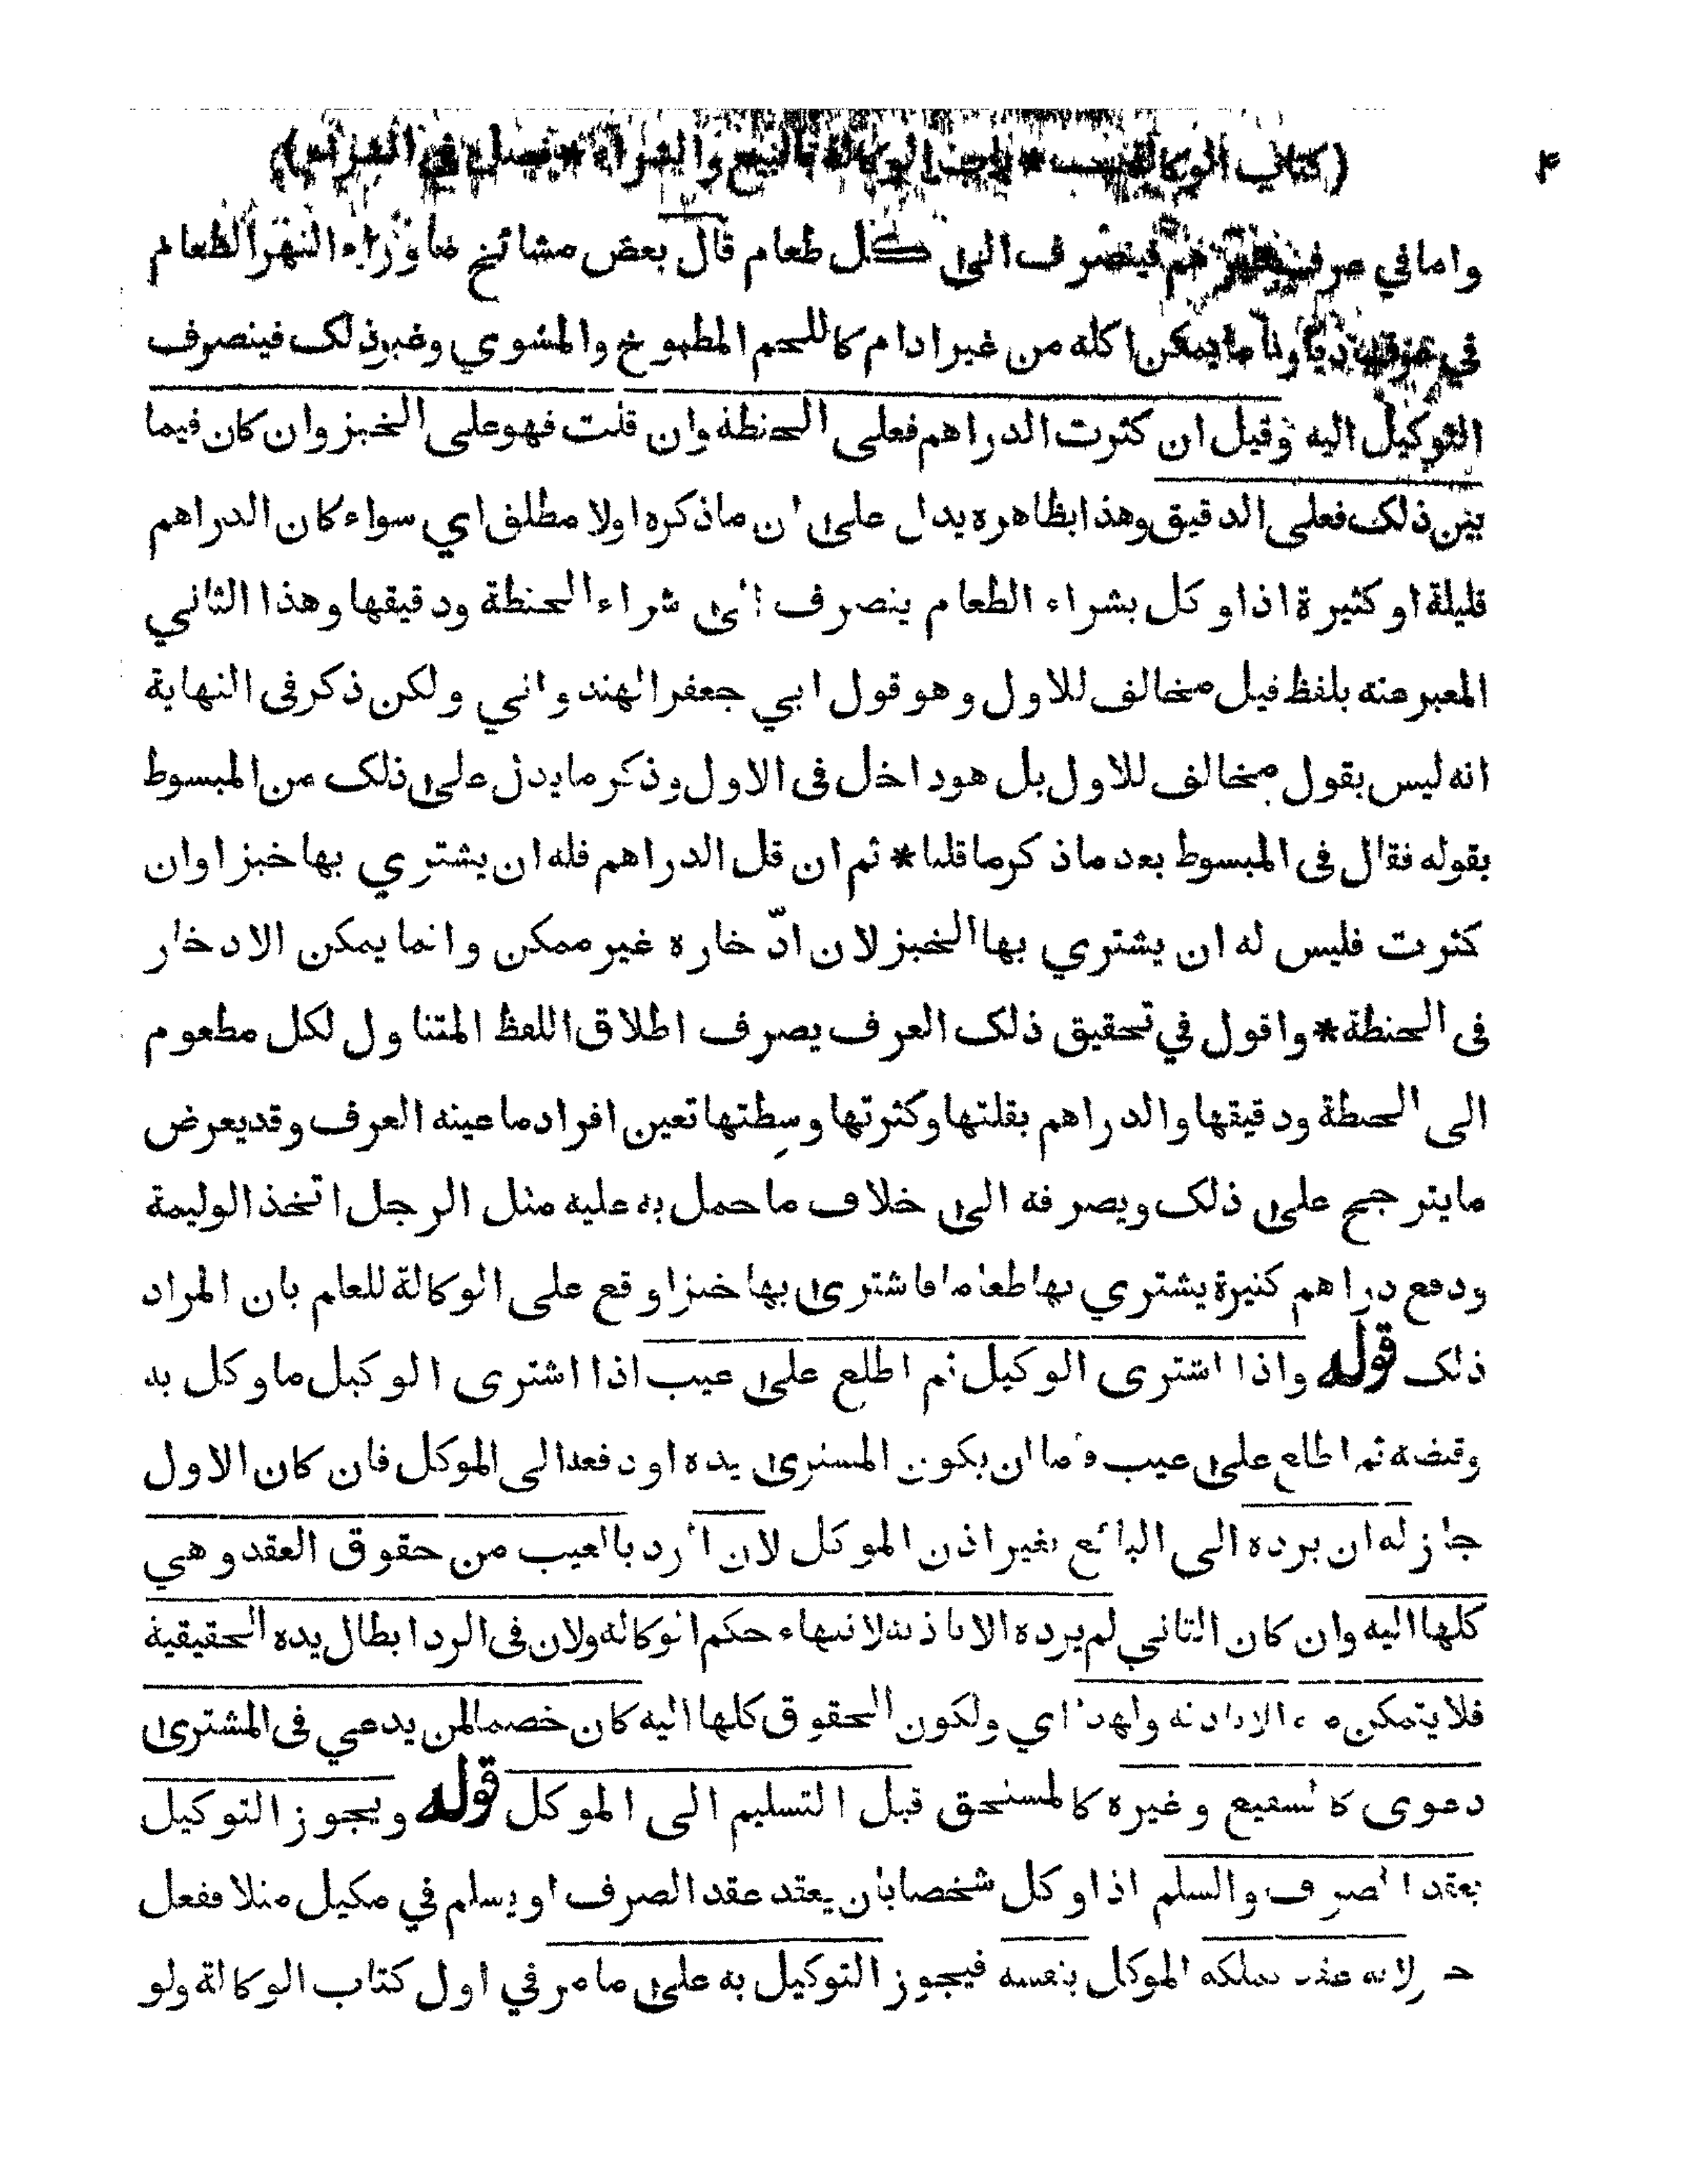 ۴ (كتاب الوكالة * باب الوكالة بالبيع والشراء * فصل في الشراء)
واما في عرف غيرهم فينصرف الى كل طعام قال بعض مشائخ ما وراء النهر الطعام
في عرف ديارنا ما يمكن اكله من غير ادام كاللحم المطبوخ والمشوي وغير ذلك فينصرف
التوكيل اليه وقيل ان كثرت الدراهم فعلى الحنطة وان قلت فهو على الخبز وان كان فيما
بين ذلك فعلى الدقيق وهذا بظاهره يدل على ان ما ذكره اولا مطلق اي سواء كان الدراهم
قليلة او كثيرة اذا وكل بشراء الطعام ينصرف الى شراء الحنطة ودقيقها وهذا الثاني
المعبر عنه بلفظ قيل مخالف للاول وهو قول ابي جعفر الهندواني ولكن ذكر فى النهاية
انه ليس بقول مخالف للاول بل هو داخل فى الاول وذكر ما يدل على ذلك من المبسوط
بقوله فقال فى المبسوط بعد ما ذكر ما قلنا * ثم ان قل الدراهم فله ان يشتري بها خبزا وان
كثرت فليس له ان يشتري بها الخبز لان ادّخاره غير ممكن وانما يمكن الادخار
فى الحنطة * واقول في تحقيق ذلك العرف يصرف اطلاق اللفظ المتناول لكل مطعوم
الى الحنطة ودقيقها والدراهم بقلتها وكثرتها وسطتها تعين افراد ما عينه العرف وقد يعرض
ما يترجح على ذلك ويصرفه الى خلاف ما حمل به عليه مثل الرجل اتخذ الوليمة
ودفع دراهم كثيرة يشتري بها طعاما فاشترى بها خبزا وقع على الوكالة للعلم بان المراد
ذلك قوله واذا اشترى الوكيل ثم اطلع على عيب اذا اشترى الوكيل ما وكل به
وقبضه ثم اطلع على عيب فاما ان يكون المشترى بيده او دفعه الى الموكل فان كان الاول
جاز له ان يرده الى البائع بغير اذن الموكل لان الرد بالعيب من حقوق العقد وهي
كلها اليه وان كان الثاني لم يرده الا باذنه لانتهاء حكم الوكالة ولان فى الرد ابطال يده الحقيقية
فلا يتمكن منه الا باذنه ولهذا اي ولكون الحقوق كلها اليه كان خصما لمن يدعي فى المشترى
دعوى كالشفيع وغيره كالمستحق قبل التسليم الى الموكل قوله ويجوز التوكيل
بعقد الصرف والسلم اذا وكل شخصا بان يعقد عقد الصرف او يسلم في مكيل مثلا ففعل
جاز لانه عقد يملكه الموكل بنفسه فيجوز التوكيل به على ما مر في اول كتاب الوكالة ولو